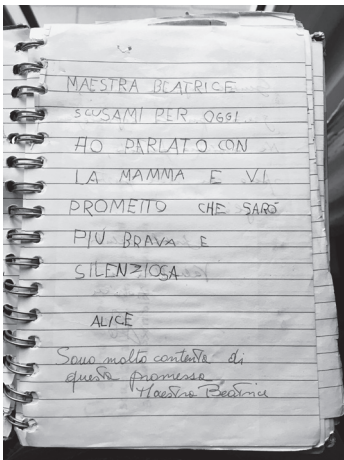 MAESTRA BEATRICE
SCUSAMI PER OGGI
HO PARLATO CON
LA MAMMA E VI
PROMETTO CHE SARÒ
PIÙ BRAVA E
SILENZIOSA
ALICE
Sono molto contenta di
questa promessa
Maestra Beatrice